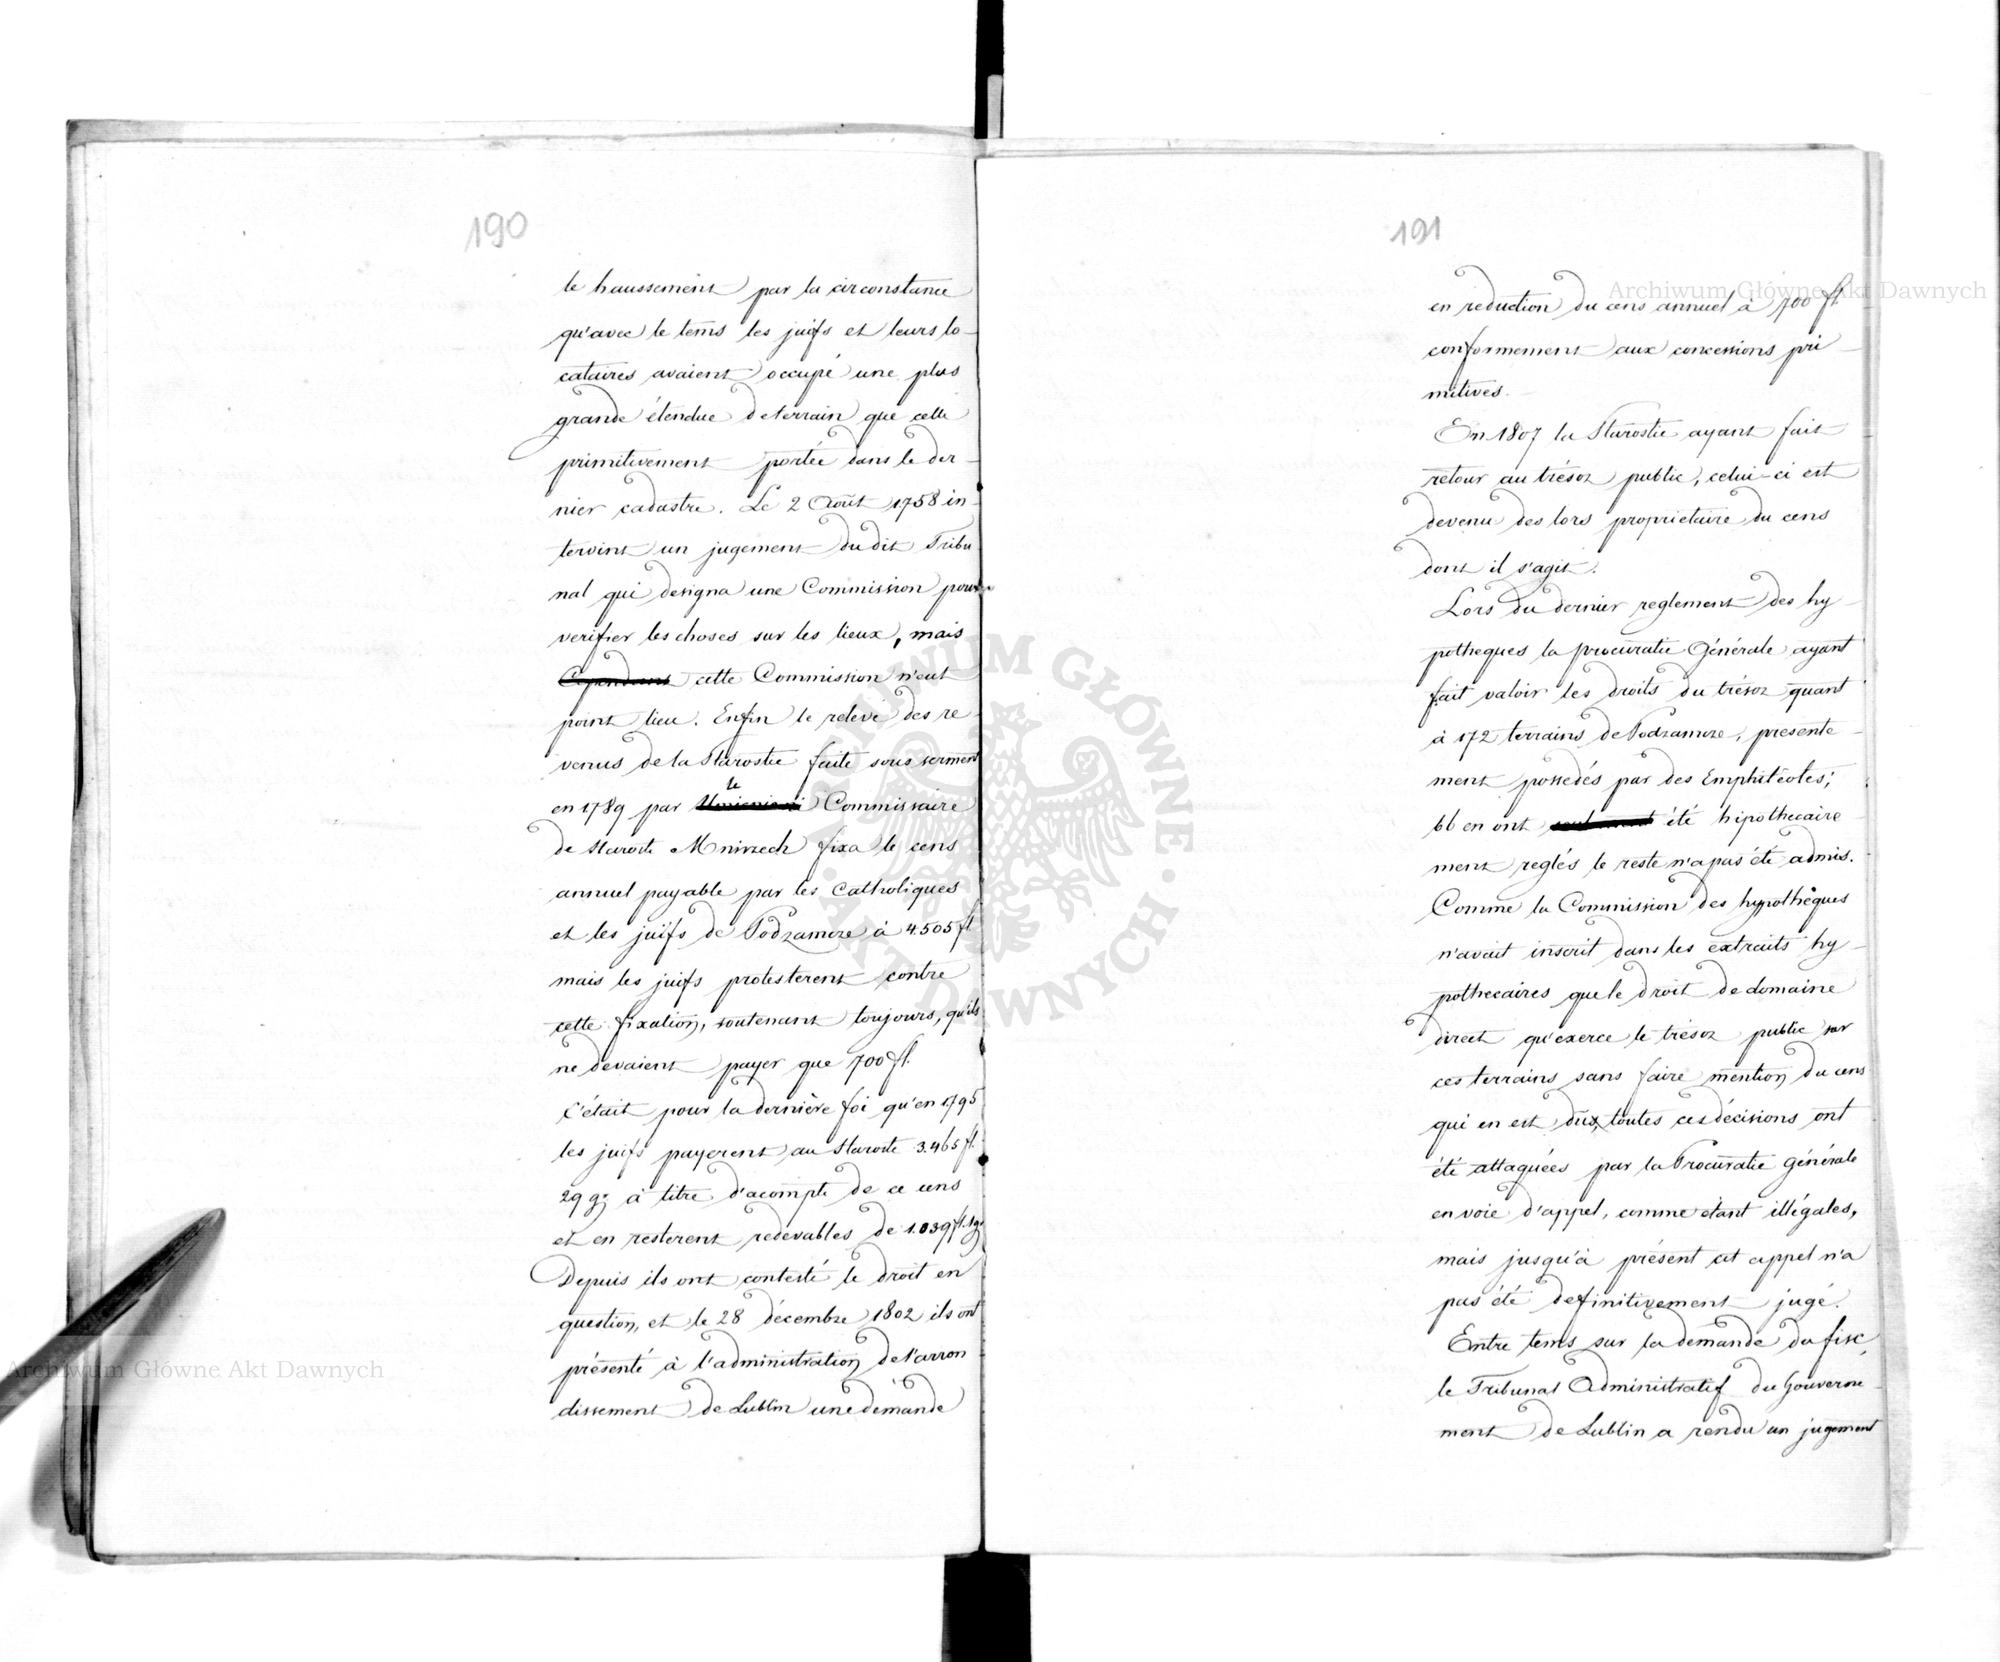 190
le haussement par la circonstance
qu'avec le tems les juifs et leurs lo-
cataires avaient occupé une plus
grande étendue de terrain que celle
primitivement portée dans le der-
nier cadastre. Le 2 Août 1758 in-
tervint un jugement dudit Tribu-
nal qui designa une Commission pour
verifier les choses sur les lieux, mais
Cependant cette Commission n'eut
point lieu. Enfin le relevé des re-
venus de la Starostie faite sous serment
le
en 1789 par Commissaire
de Staroste Mniszech fixa le cens
annuel payable par les Catholiques
et les juifs de Podzamcze à 4.505 fl.
mais les juifs protesterent contre
cette fixation, soutenant toujours, qu'ils
ne devaient payer que 700 fl.
C'était pour la dernière foi qu'en 1795
les juifs payerent au Staroste 3.465 fl.
29 gr. à titre d'acompte de ce cens
et en resterent redevables de 1.039 fl. 1 gr.
Depuis ils ont contesté le droit en
question, et le 28 décembre 1802 ils ont
présenté à l'administration de l'arron
dissement de Lublin une demande
191
en reduction du cens annuel à 700 fl.
conformement aux concessions pri-
mitives.
En 1807 la Starostie ayant fait
retour au trésor public, celui-ci est
devenu des lors proprietaire du cens
dont il s'agit.
Lors du dernier reglement des hy-
potheques la procuratie Générale ayant
fait valoir les droits du trésor quant
à 172 terrains de Podzamcze, presente-
ment possedés par des Emphitéotes;
66 en ont seulement été hipothecaire-
ment reglés le reste n'a pas été admis.
Comme la Commission des hypothèques
n'avait inscrit dans les extraits hy-
pothecaires que le droit de domaine
direct qu'exerce le trésor public sur
ces terrains sans faire mention du cens
qui en est dus, toutes ces décisions ont
été attaquées par la Procuratie générale
en voie d'appel, comme etant illégales,
mais jusqu'à présent cet appel n'a
pas été definitivement jugé.
Entre tems sur la demande du fisc,
le Tribunal Administratif du Gouverne-
ment de Lublin a rendu un jugement
Archiwum Główne Akt Dawnych
Archiwum Główne Akt Dawnych
ARCHIWUM GŁÓWNE AKT DAWNYCH